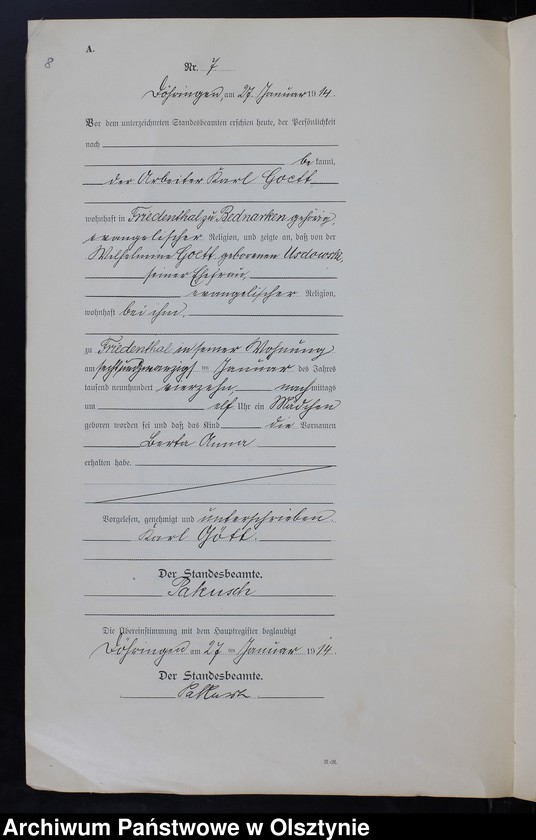 8
A.
Nr. 7
Döhringen, am 27. Januar 1914.
Vor dem unterzeichneten Standesbeamten erschien heute, der Persönlichkeit
nach
be kannt,
der Arbeiter Karl Goett
wohnhaft in Friedenthal zu Bednarken gehörig,
evangelischer Religion, und zeigte an, daß von der
Wilhelmine Goett geborenen Usdowski,
seiner Ehefrau,
evangelischer Religion,
wohnhaft bei ihm,
zu Friedenthal in seiner Wohnung
am sechsundzwanzigsten Januar des Jahres
tausend neunhundert vierzehn nach mittags
um elf Uhr ein Mädchen
geboren worden sei und daß das Kind die Vornamen
Berta Anna
erhalten habe.
Vorgelesen, genehmigt und unterschrieben.
Karl Gött.
Der Standesbeamte.
Pakusch
Die Übereinstimmung mit dem Hauptregister beglaubigt
Döhringen am 27 ten Januar 1914.
Der Standesbeamte.
Archiwum Państwowe w Olsztynie